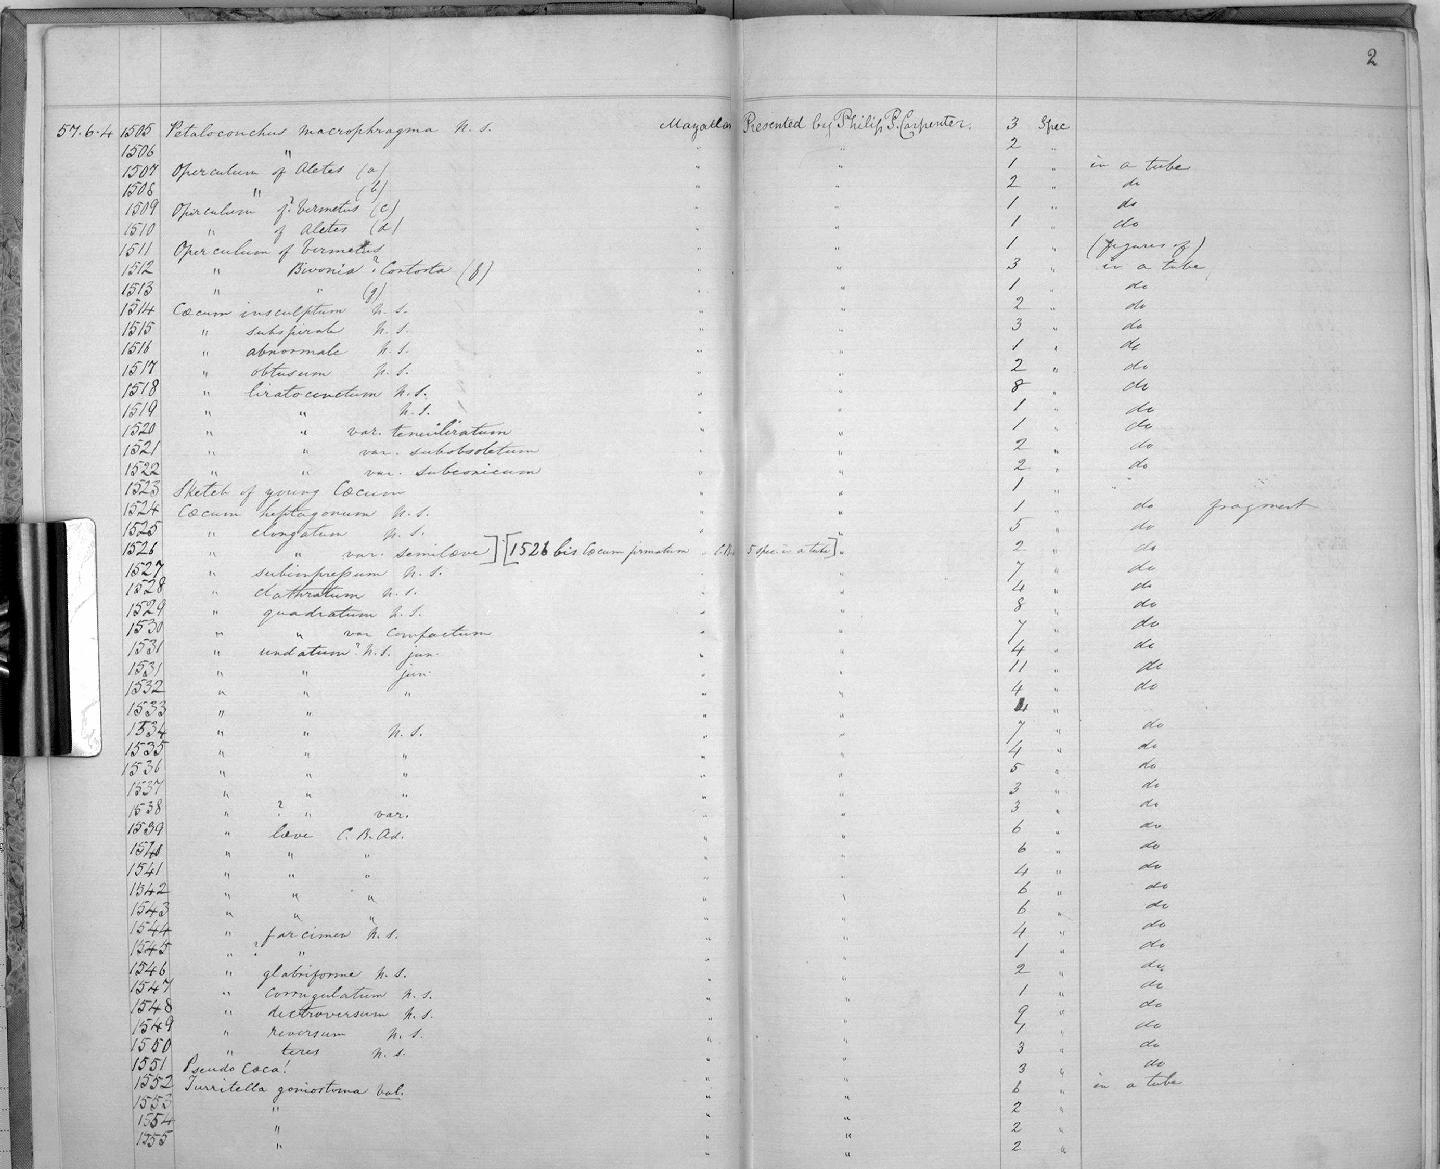 2
57.6.4 1505 Petaloconchus macrophragma N. S. Mazatlan Presented by Philip P. Carpenter. 3 Spec
1506 " " " 2 "
1507 Operculum of Aletes (a) " " 1 " in a tube
1508 " (b) " " 2 " do
1509 Operculum of? Vermetus (c) " " 1 " do
1510 " of Aletes (d) " " 1 " do
1511 Operculum of Vermetus " " 1 " (figures of)
1512 " Bivonia? Contorta (f) " " 3 " in a tube
1513 " " (g) " " 1 " do
1514 Cæcum insculptum N. S. " " 2 " do
1515 " subspirale N. S. " " 3 " do
1516 " abnormale N. S. " " 1 " do
1517 " obtusum N. S. " " 2 " do
1518 " liratocinctum N. S. " " 8 " do
1519 " " N. S. " " 1 " do
1520 " " var. tenuiliratum " " 1 " do
1521 " " var. subobsoletum " " 2 " do
1522 " " var. subconicum " " 2 " do
1523 Sketch of young Cæcum " " 1 " "
1524 Cæcum heptagonum N. S. " " 1 " do fragment
1525 " elongatum N. S. " " 5 " do
1526 " " var. semilæve] [1526 bis Cæcum firmatum " C.B. 5 spec. in a tube] " 2 " do
1527 " subimpressum N. S. " " 7 " do
1528 " clathratum N. S. " " 4 " do
1529 " quadratum N. S. " " 8 " do
1530 " " var compactum " " 7 " do
1531 " undatum? N. S. jun. " " 4 " do
1531 " " jun " " 11 " do
1532 " " " " " 4 " do
1533 " " " " 4 "
1534 " " N. S. " " 7 " do
1535 " " " " " 4 " do
1536 " " " " " 5 " do
1537 " " " " " 3 " do
1538 " ? " var. " " 3 " do
1539 " læve C. B. Ad. " " 6 " do
1540 " " " " " 6 " do
1541 " " " " " 4 " do
1542 " " " " " 6 " do
1543 " " " " " 6 " do
1544 " farcimen N. S. " " 4 " do
1545 " ? " " " 1 " do
1546 " glabriforme N. S. " " 2 " do
1547 " corrugulatum N. S. " " 1 " do
1548 " dextroversum N. S. " " 9 " do
1549 " reversum N. S. " " 1 " do
1550 " teres N. S. " " 3 " do
1551 Pseudo Cæca! " " 3 " do
1552 Turritella goniostoma Val. " " 6 " in a tube
1553 " " " 2 "
1554 " " " 2 "
1555 " " " 2 "